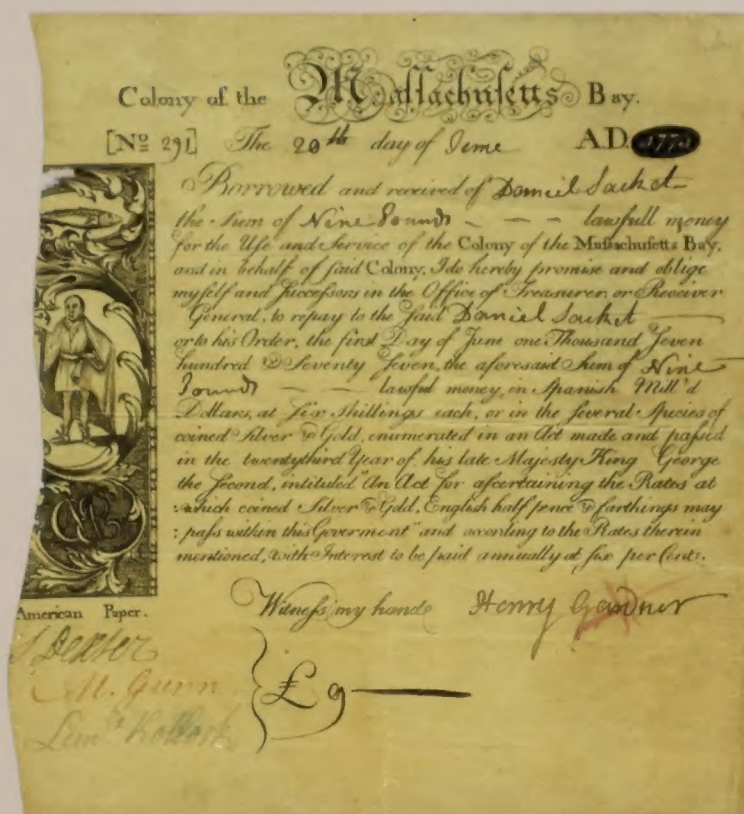 Colony of the Massachusetts Bay.
[No 291] The 20th day of June A.D. 1775
Borrowed and received of Daniel Sacket
the Sum of Nine Pounds — — — lawfull money
for the Use and Service of the Colony of the Massachusetts Bay,
and in behalf of said Colony, I do hereby promise and oblige
myself and Successors in the Office of Treasurer or Receiver
General, to repay to the said Daniel Sacket
or to his Order, the first Day of June one Thousand Seven
hundred & Seventy Seven, the aforesaid Sum of Nine
Pounds — — lawful money, in Spanish Mill'd
Dollars, at Six Shillings each, or in the several Species of
coined Silver & Gold, enumerated in an Act made and passed
in the twentythird Year of his late Majesty King George
the Second, intitled An Act for ascertaining the Rates at
:which coined Silver & Gold, English half pence & farthings may
:pass within this Goverment" and according to the Rates therein
mentioned, with Interest to be paid annually at six per Cent.
American Paper.
Witness my hand Henry Gardner
S Dexter
M. Gunn
Lemll Kollock
£9